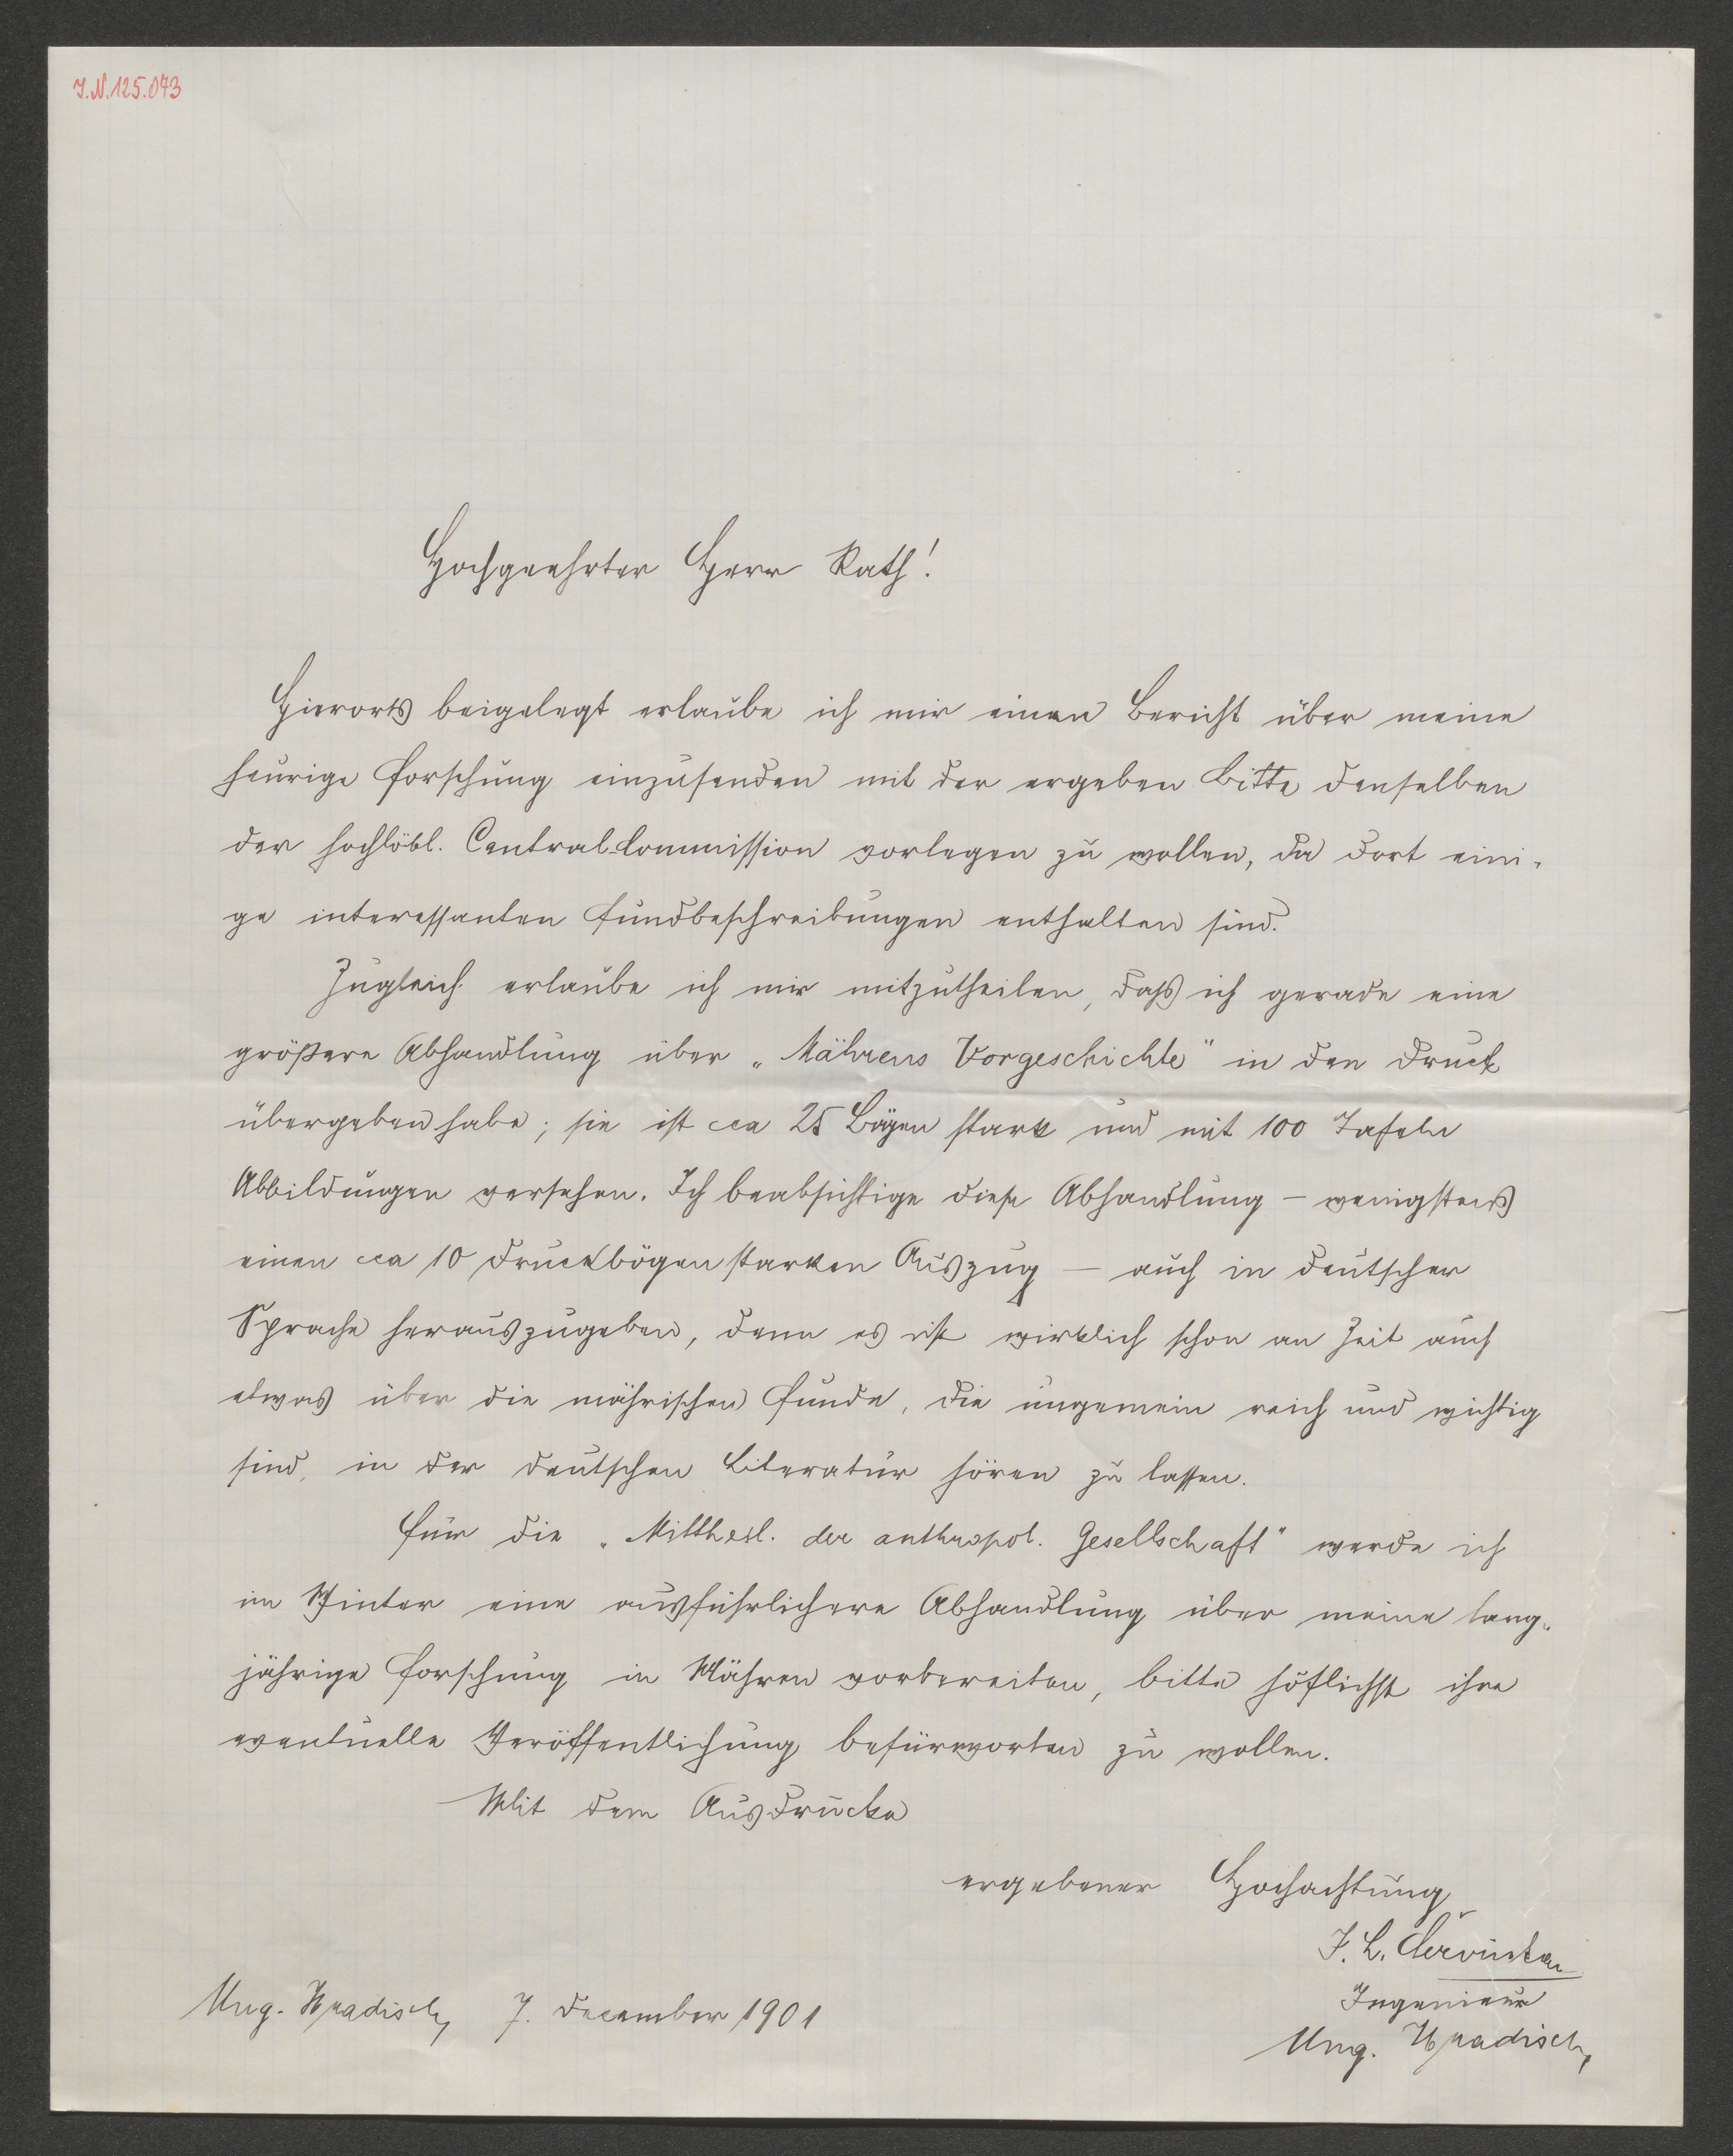 I.N.125.073
Hochgeehrter Herr Rath!
Hierorts beigelegt erlaube ich mir einen Bericht über meine
heurige Forschung einzusenden mit der ergeben Bitte denselben
der hochlöbl. Central-Commission vorlegen zu wollen, da dort eini-
ge interessanten Fundbeschreibungen enthalten sind.
Zugleich erlaube ich mir mitzutheilen, daß ich gerade eine
größere Abhandlung über „Mährens Vorgeschichte" in den Druck
übergeben habe; sie ist cca 25 Bögen stark und mit 100 Tafeln
Abbildungen versehen. Ich beabsichtige diese Abhandlung – wenigstens
einen cca 10 Druckbögen starken Auszug – auch in deutscher
Sprache herauszugeben, denn es ist wirklich schon an Zeit auch
etwas über die mährischen Funde, die ungemein reich und wichtig
sind, in der deutschen Literatur hören zu lassen.
Für die „Mittheil. der anthropol. Gesellschaft" werde ich
im Winter eine ausführlichere Abhandlung über meine lang-
jährige Forschung in Mähren vorbereiten, bitte höflichst ihre
eventuelle Veröffentlichung befürworten zu wollen.
Mit dem Ausdrucke
ergebener Hochachtung
I. L. Červinka
Ingenieur
Ung. Hradisch,
Ung. Hradisch, 7. December 1901